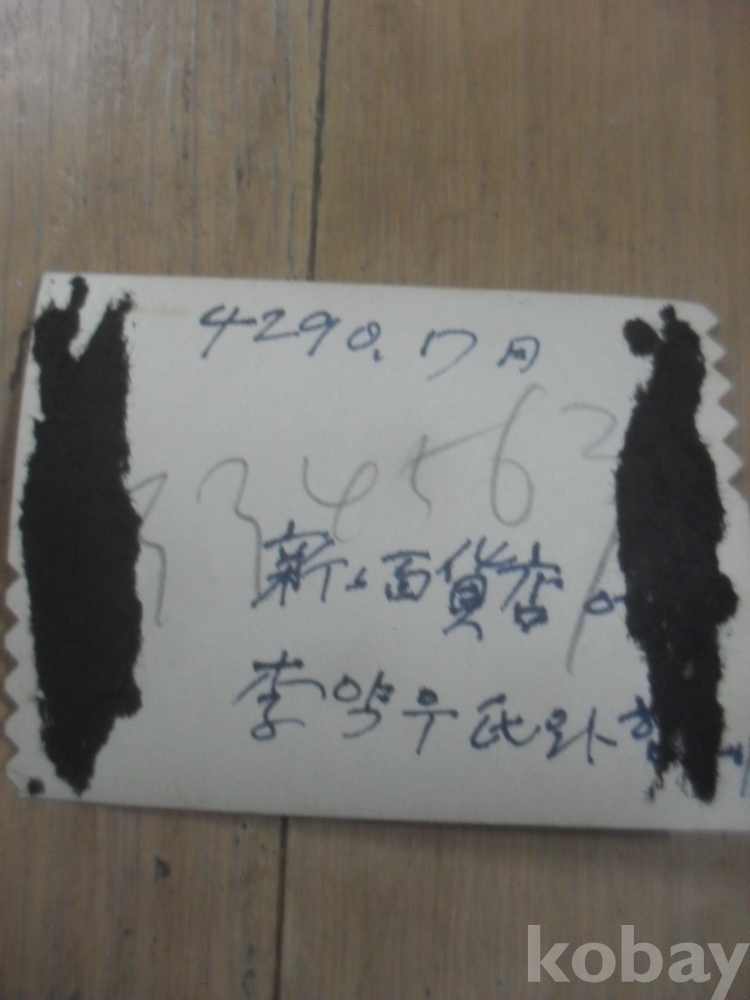 4290. 7月
334567
新ㅅ百貨店
李약우氏와 함께
kobay